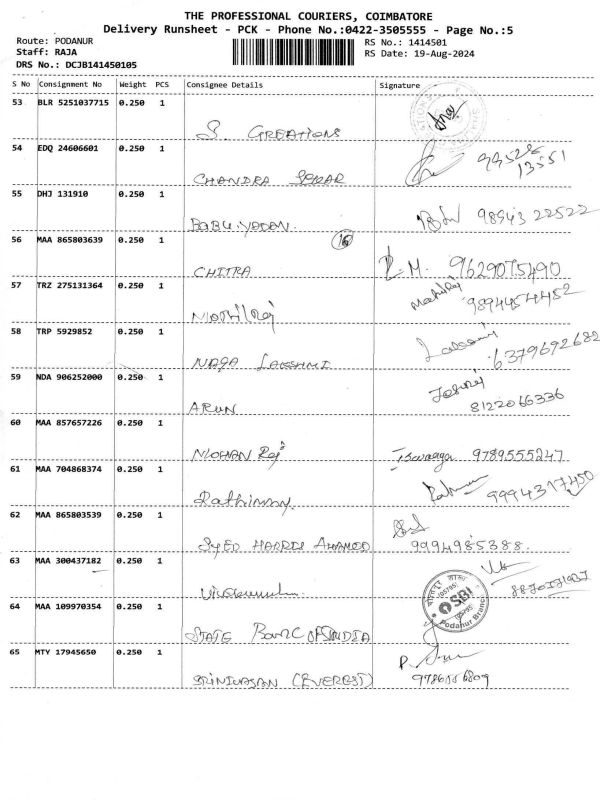 THE PROFESSIONAL COURIERS, COIMBATORE
Delivery Runsheet - PCK - Phone No.:0422-3505555 - Page No.:5
Route: PODANUR
RS No.: 1414501
Staff: RAJA
RS Date: 19-Aug-2024
DRS No.: DCJB141450105
S No Consignment No Weight PCS Consignee Details Signature
53 BLR 5251037715 0.250 1
S. CREATIONS
54 EDQ 24606601 0.250 1 99528
13551
CHANDRA SEKAR
55 DHJ 131910 0.250 1 98943 22522
BABU.YADAV.
56 MAA 865803639 0.250 1 16
CHITRA R.M. 9629075490
57 TRZ 275131364 0.250 1 Mathiraj
9894454482
Mathi Raj
58 TRP 5929852 0.250 1
NAGA LAKSHMI 6379692682
59 NDA 906252000 0.250 1
ARUN 8122066336
60 MAA 857657226 0.250 1
MOHAN Raj 9789555247
61 MAA 704868374 0.250 1
9994317450
62 MAA 865803539 0.250 1
SYED HARRIS AHAMED 9994985388.
63 MAA 300437182 0.250 1
64 MAA 109970354 0.250 1 SBI
(05795)
Podanur Branch
STATE BANK OF INDIA
65 MTY 17945650 0.250 1
SRINIVASAN (EVEREST)